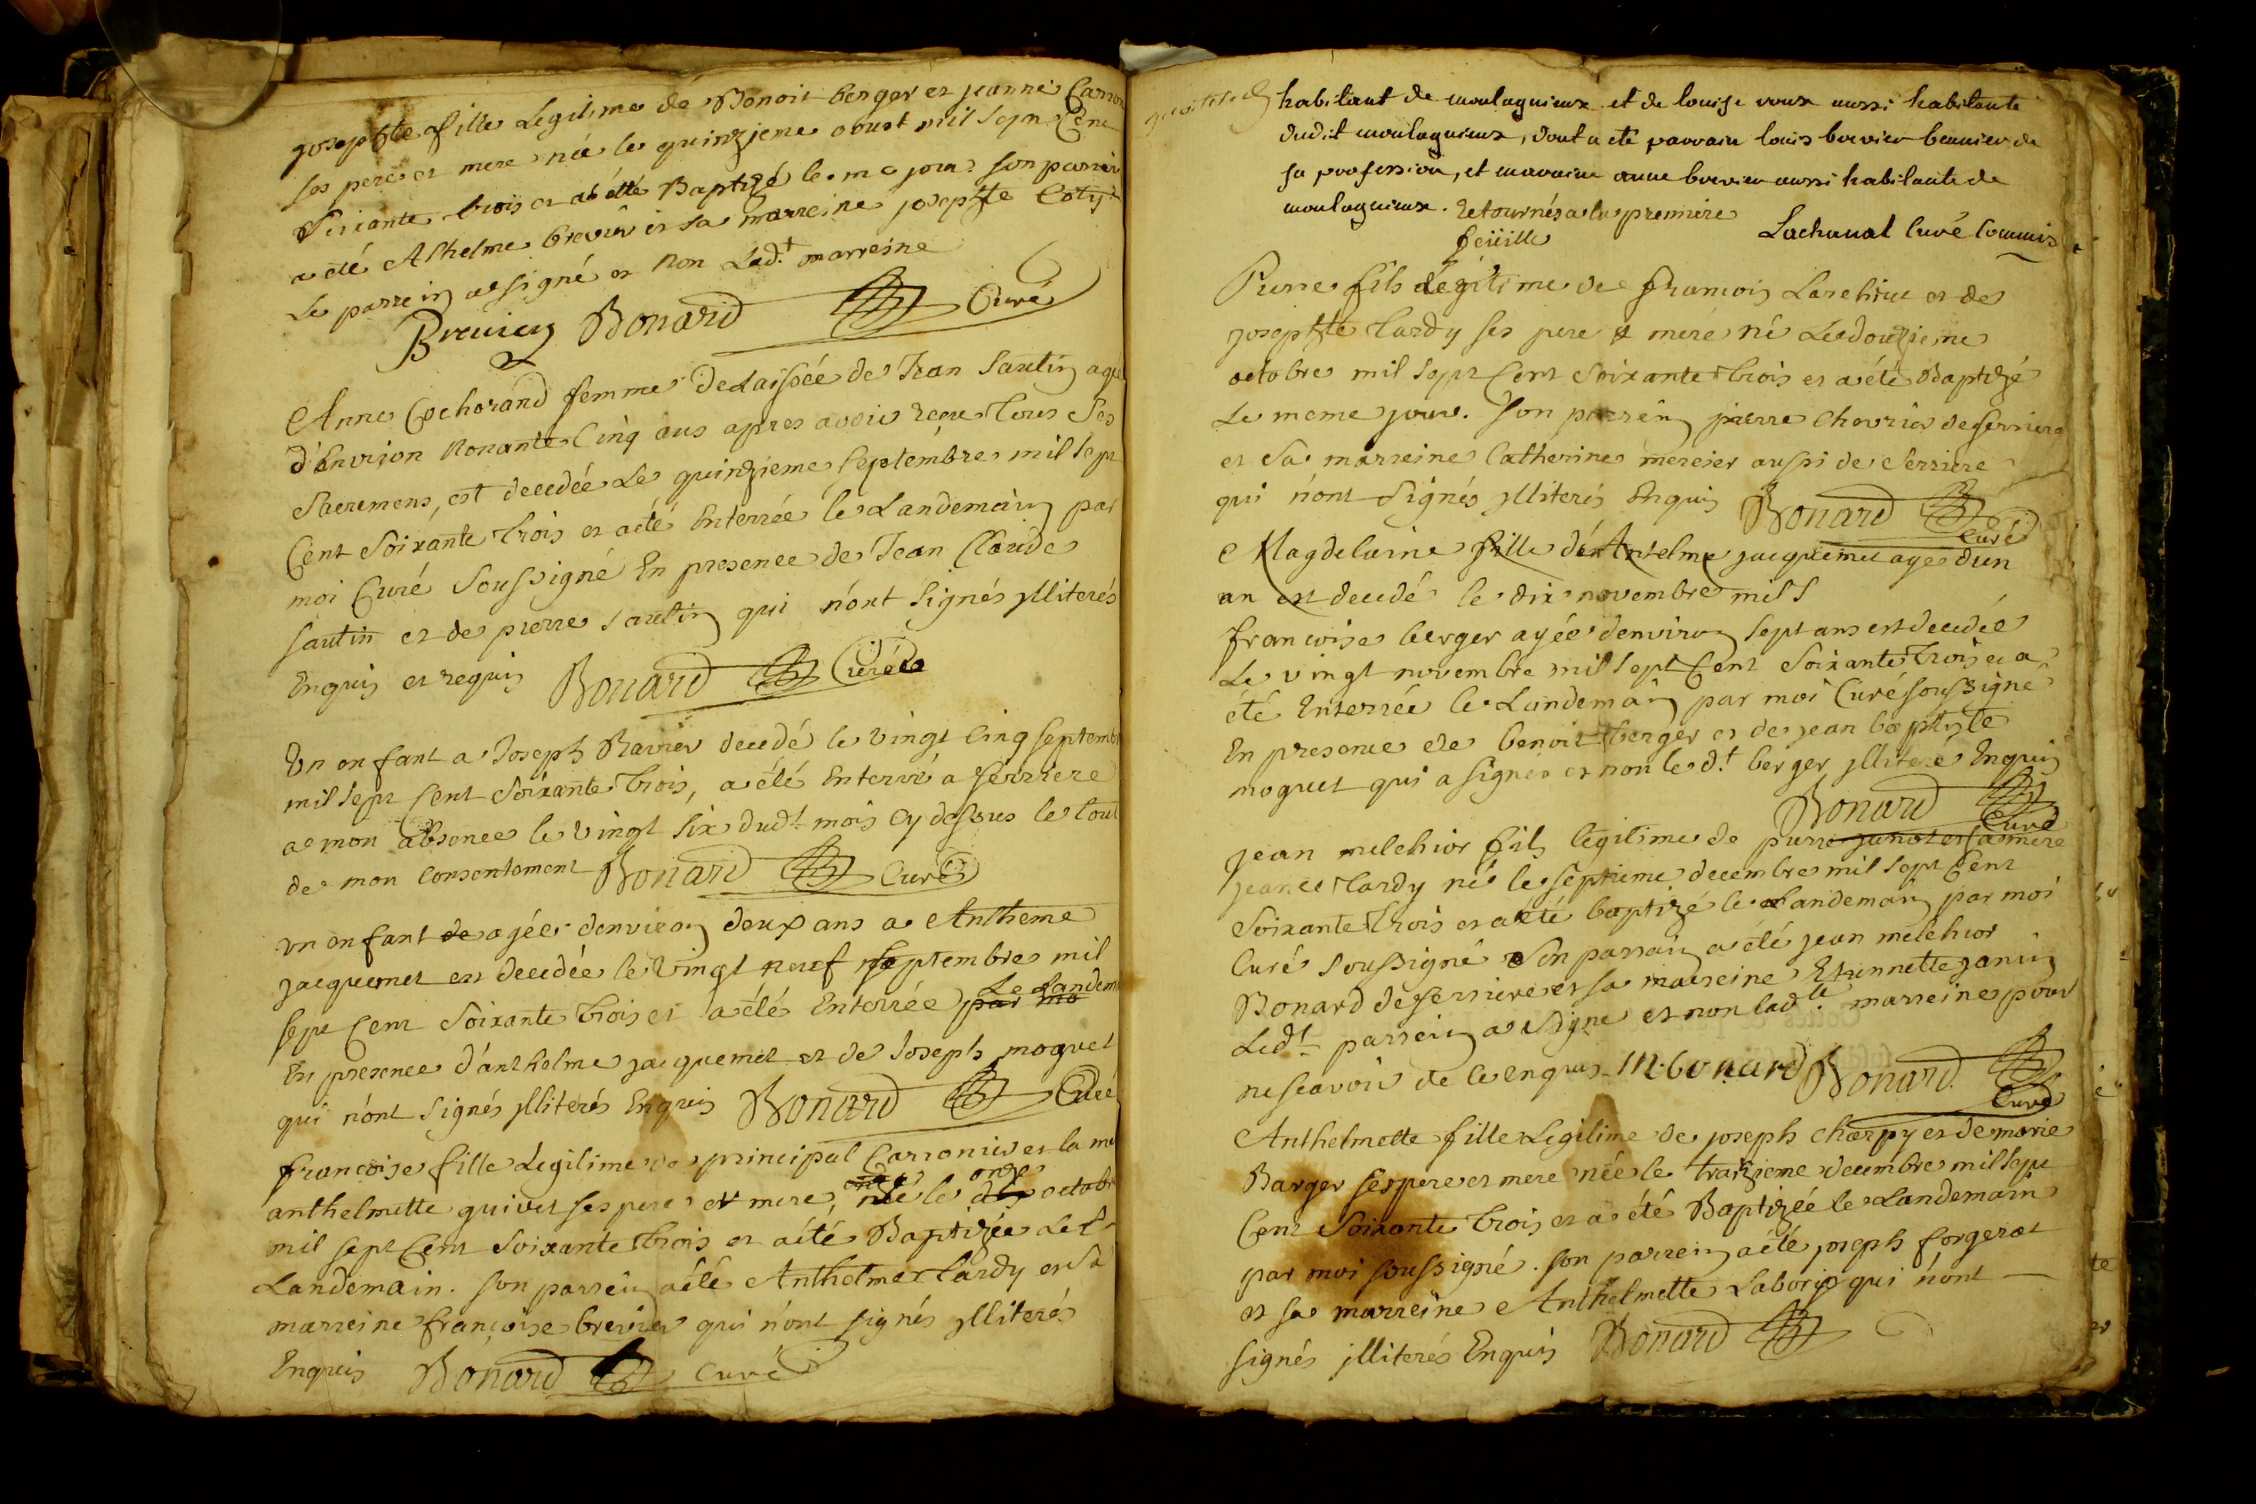 josephte fille Legitime de Benoit berger et jeanne Carron
ses pere et mere née le quinzieme aoust mil sept Cent
Soixante trois et a été Baptizé le me jour son parrain
a été Athelme brevier et sa marreine josephte
Le parrein a signé et non Lad.t marreine
Brevier Bonard Curé
Anne Cochorand femme deLaissée de Jean Sautin agé
d'Environ Nonante Cinq ans apres avoir reçue tous Ses
Sacremens, est decedée Le quinzieme Septembre mil Sept
Cent Soixante trois et a été Enterrée le Landemain par
moi Curé Soussigné En presence de Jean Claude
Sautin et de pierre Sautin qui n'ont Signés ylliterés
Enquis et requis Bonard Curé
Un enfant a Joseph Ravier decedé le vingt Cinq Septembre
mil Sept Cent Soixante trois, a été Enterré a Serriere
a mon absence le vingt Six dud.t mois Cy dessus le tout
de mon Consentement Bonard Curé
un enfant de agée denviron deux ans a Antheme
jacquemet est decedée le vingt neuf septembre mil
Le Landem
sept Cent Soixante trois et a été Enterrée par mo
En presence d'anthelme jacquemet et de Joseph moquet
qui n'ont Signés ylliterés Enquis Bonard Curé
francoise fille Legitime de principal Carronier et la me
onze
anthelmette quivet ses pere et mere, née le dix octobre
mil sept Cent Soixante trois et a été Baptizée Le
Landemain. Son parrein a été Anthelme tardy et Sa
marreine françoise brevier qui n'ont signés ylliterés
Enquis Bonard Curé
habitant de moulagnieux et de louise roux aussi habitante
dudit moulagnieux, dont a été parrain louis brevier bennier de
sa profession, et maraine anne brevier aussi habitante de
moulagnieux. Retournés a la premiere
feüille
Lachanal Curé Commis
Pierre fils Legitime de francois Larchius et de
josephte tardy ses pere & mere né Le douzieme
octobre mil Sept Cent Soixante trois et a été Baptizé
Le meme jour. Son parrein pierre Chevrier de Serriere
et Sa marreine Catherine mercier aussi de Serriere
qui n'ont Signés ylliterés Enquis Bonard Curé
Magdelaine fille de Antelme jacquemet agé d'un
an est decedé le dix novembre mil S
francoise berger agée d'environ Sept ans est decedée
Le vingt novembre mil Sept Cent Soixante trois et a
été Enterrée le Landemain par moi Curé soussigné
En presence de benoit berger et de jean baptiste
moquet qui a signé et non le d.t berger ylliteré Enquis
Bonard Curé
jean melchior fils legitime de pierre janot et sa mere
jeanne tardy né le septieme decembre mil sept Cent
Soixante trois et a été baptizé le Landemain par moi
Curé Soussigné Son parrain a été jean melchior
Bonard de serriere et sa marreine Etiennette janin
Led.t parrein a signe et non lad.te marreine pour
ne scavoir de ce enquis M. bonard Bonard
Curé
Anthelmette fille Legitime de joseph charpy et de marie
Barger ses pere et mere née le traizieme decembre mil sept
Cent Soixante trois et a été Baptizée le Landemain
par moi soussigné. Son parrein a été joseph forgerat
et sa marreine Anthelmette Laborie qui n'ont
signés ylliterés Enquis Bonard